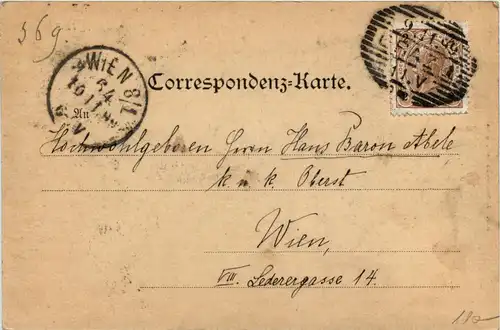 569.
WIEN 8/1
Correspondenz-Karte.
An
Hochwohlgeboren Herrn Hans Baron Abele,
k. u. k. Oberst
Wien,
VIII. Lederergasse 14.